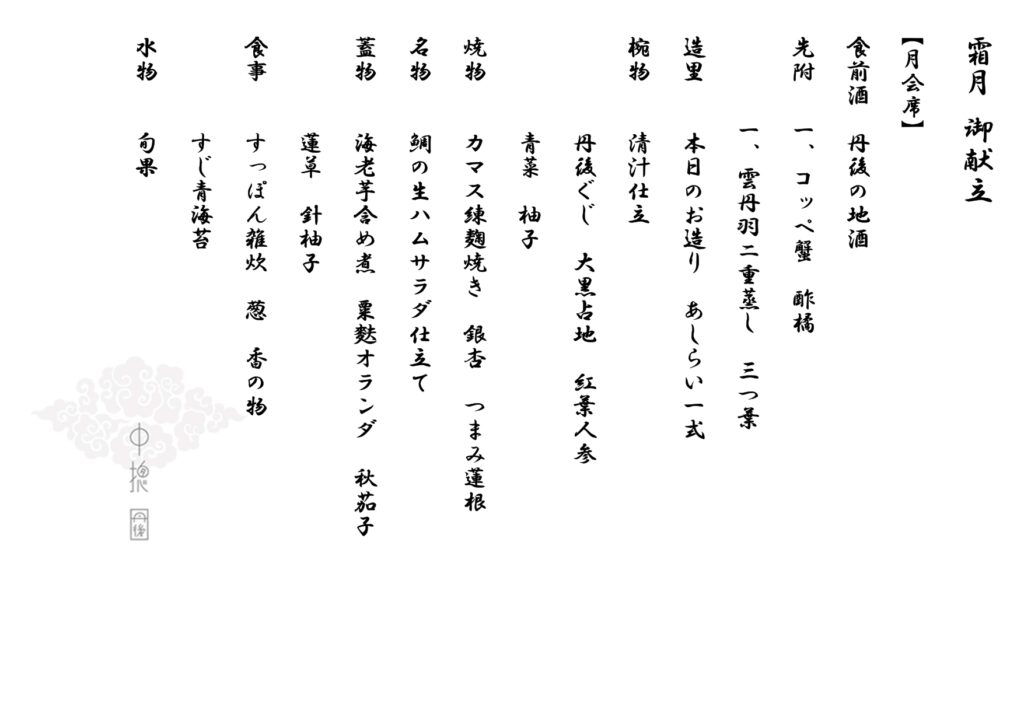 霜月 御献立
【月会席】
食前酒 丹後の地酒
先附 一、コッペ蟹 酢橘
一、雲丹羽二重蒸し 三つ葉
造里 本日のお造り あしらい一式
椀物 清汁仕立
丹後ぐじ 大黒占地 紅葉人参
青菜 柚子
焼物 カマス練麹焼き 銀杏 つまみ蓮根
名物 鯛の生ハムサラダ仕立て
蓋物 海老芋含め煮 粟麩オランダ 秋茄子
蓮草 針柚子
食事 すっぽん雑炊 葱 香の物
すじ青海苔
水物 旬果
丹後